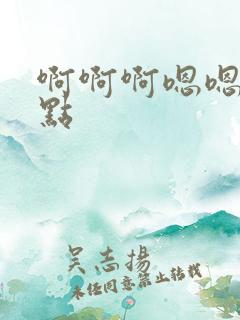 啊啊啊嗯嗯
點
吴志揚
未任同意禁止转载